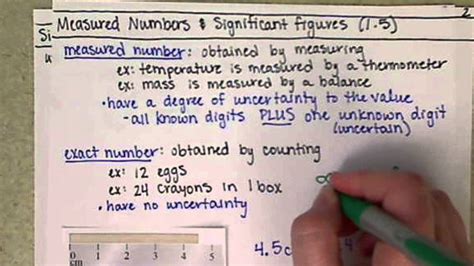 Measured Numbers & Significant figures (1.5)
2
Si
measured number: obtained by measuring
ex: temperature is measured by a thermometer
ex: mass is measured by a balance
• have a degree of uncertainty to the value
- all known digits PLUS one unknown digit
(uncertain)
exact number: obtained by counting
ex: 12 eggs
ex: 24 crayons in 1 box
• have no uncertainty
0 1 2 3 4 5
cm
4.5c
4